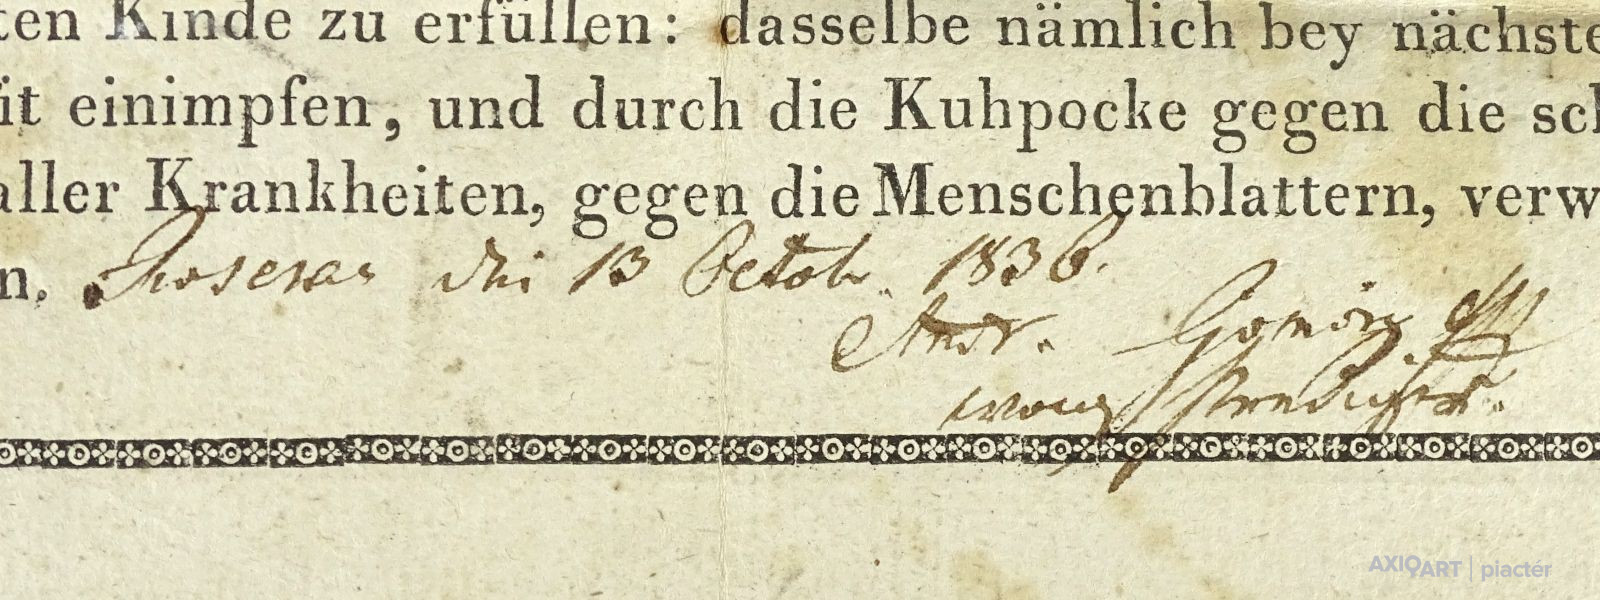 ten Kinde zu erfüllen: dasselbe nämlich bey nächste
üt einimpfen, und durch die Kuhpocke gegen die sch
aller Krankheiten, gegen die Menschenblattern, verw
n. den 13 Octob. 1836.
Andr. Gömöry
evang Prediger.
AXIOART | piactér